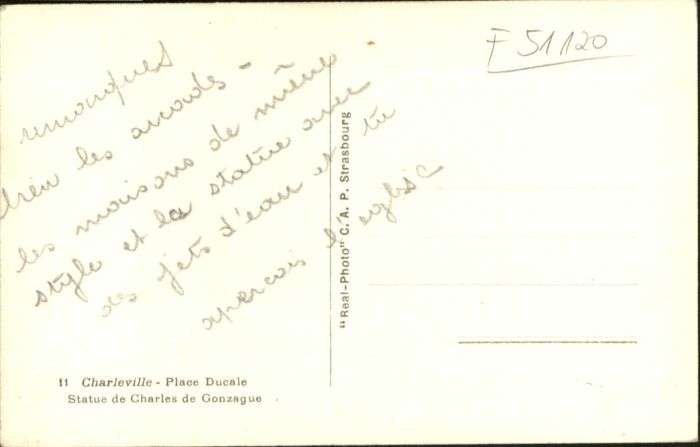 F 51120
remarques
bien les arcades -
les maisons de même
style et la statue avec
des jets d'eau et tu
apercois l'eglise
"Real-Photo" C. A. P. Strasbourg
11 Charleville - Place Ducale
Statue de Charles de Gonzague